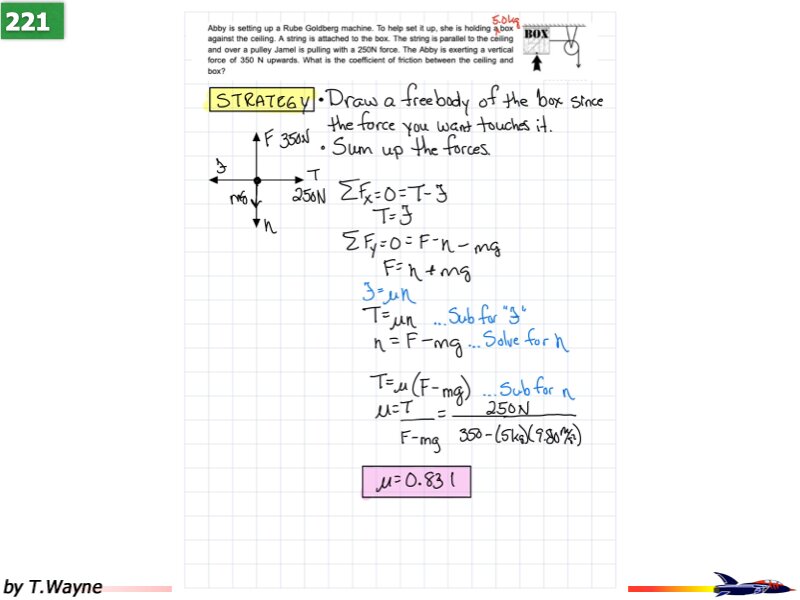 221
Abby is setting up a Rube Goldberg machine. To help set it up, she is holding a 5.0kg box
against the ceiling. A string is attached to the box. The string is parallel to the ceiling
and over a pulley Jamel is pulling with a 250N force. The Abby is exerting a vertical
force of 350 N upwards. What is the coefficient of friction between the ceiling and
box?
BOX
STRATEGY • Draw a freebody of the box since
the force you want touches it.
• Sum up the forces.
F 350N
T
250N
mg
n
ℱ
ΣFx=0=T-ℱ
T=ℱ
ΣFy=0=F-n-mg
F=n+mg
ℱ=μn
T=μn ...Sub for "ℱ"
n=F-mg...Solve for n
T=μ(F-mg) ...Sub for n
μ=T/F-mg = 250N/350-(5kg)(9.80m/s²)
μ=0.831
by T.Wayne